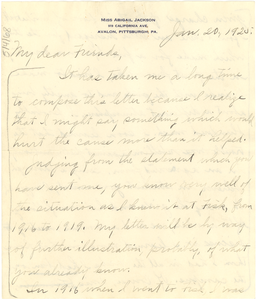 MISS ABIGAIL JACKSON
CALIFORNIA AVE.
AVALON, PITTSBURGH, PA.
Jan. 20, 1925.
My dear Friends,
It has taken me a long time
to compose this letter because I realize
that I might say something which would
hurt the cause more than it helped.
Judging from the statement which you
have sent me, you know very well of
the situation as I knew it at Fisk, from
1916 to 1919. My letter will be by way
of further illustration probably, of what
you already know.
In 1916 when I went to Fisk, I was